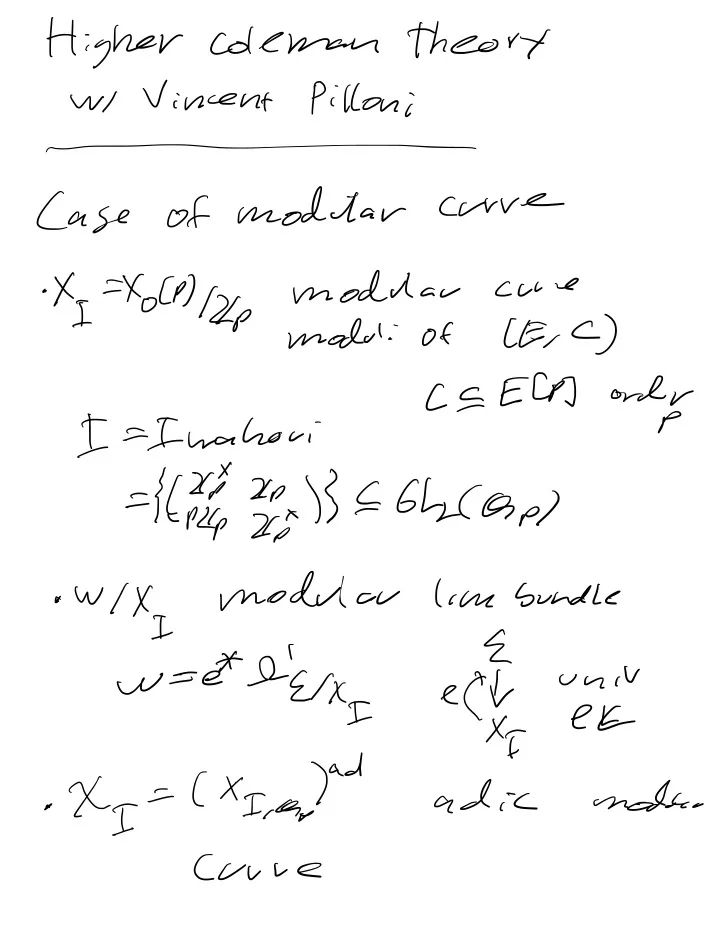 Higher coleman theory
w/ Vincent Pilloni
Case of modular curve
· X_I = X_0(p)/ℤ_p modular curve
moduli of (E, C)
C ⊆ E[p] order p
I = Iwahori
= {(ℤ_p^× ℤ_p
pℤ_p ℤ_p^×)} ⊆ GL_2(ℚ_p)
· ω/X_I modular line bundle
ω = e^* Ω^1_{ℰ/X_I} e ℰ ↓ X_I univ EC
· 𝒳_I = (X_{I,ℚ_p})^{ad} adic modular
curve